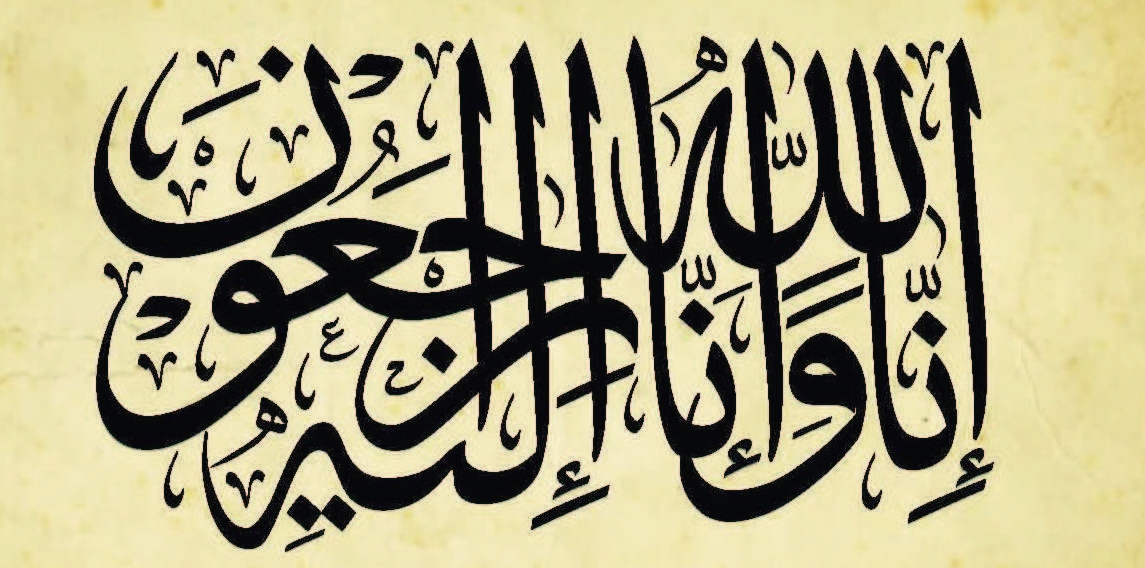 إِنَّا لِلَّهِ وَإِنَّا إِلَيْهِ رَاجِعُونَ